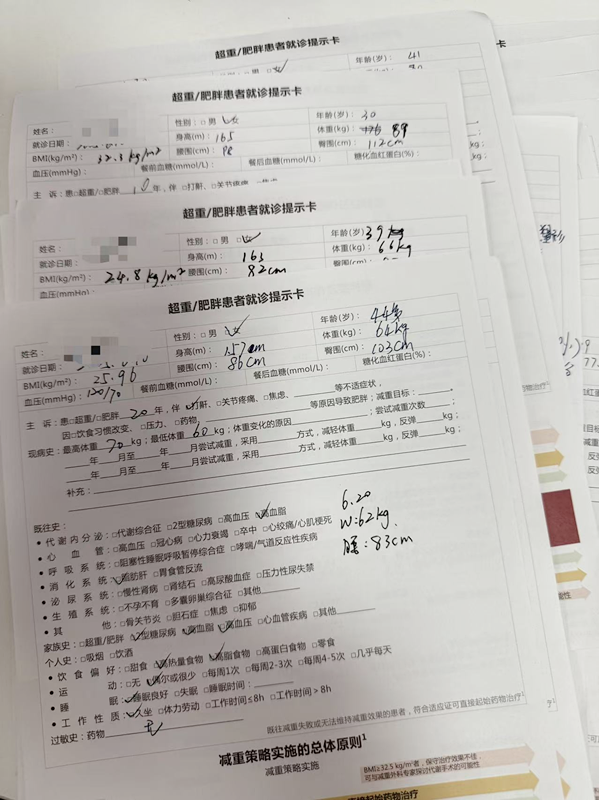 超重/肥胖患者就诊提示卡
年龄(岁): 41
超重/肥胖患者就诊提示卡
姓名:
性别: □ 男 □女
年龄(岁): 30
就诊日期:
身高(m): 165
体重(kg): 89
BMI(kg/m²): 32.3 kg/m²
腰围(m):
臀围(m): 112cm
血压(mmHg):
餐前血糖(mmol/L):
餐后血糖(mmol/L):
糖化血红蛋白(%):
主 诉: 患□超重/□肥胖 10 年, 伴 □打鼾、□关节疼痛、□焦虑
超重/肥胖患者就诊提示卡
姓名:
性别: □ 男 □女
年龄(岁): 39
就诊日期:
身高(m): 163
体重(kg): 66kg
BMI(kg/m²): 24.8 kg/m²
腰围(m): 82cm
臀围(m):
血压(mmHg):
超重/肥胖患者就诊提示卡
姓名:
性别: □ 男 □女
年龄(岁): 44岁
就诊日期:
身高(m): 157cm
体重(kg): 64kg
BMI(kg/m²): 25.96
腰围(m): 86cm
臀围(m): 103cm
血压(mmHg): 120/70
餐前血糖(mmol/L):
餐后血糖(mmol/L):
糖化血红蛋白(%):
主 诉: 患□超重/□肥胖 20 年, 伴 □打鼾、□关节疼痛、□焦虑、 等不适症状,
因□饮食习惯改变、□压力、□药物 等原因导致肥胖; 减重目标: 。
现病史: 最高体重 70 kg; 最低体重 60 kg; 体重变化的原因 ; 尝试减重次数 ;
年 月至 年 月尝试减重, 采用 方式, 减轻体重 kg, 反弹 kg;
年 月至 年 月尝试减重, 采用 方式, 减轻体重 kg, 反弹 kg;
补充:
既往史:
• 代谢内分泌: □代谢综合征 □2型糖尿病 □高血压 □高血脂
• 心 血 管: □高血压 □冠心病 □心力衰竭 □卒中 □心绞痛/心肌梗死
• 呼吸系统: □阻塞性睡眠呼吸暂停综合症 □哮喘/气道反应性疾病
• 消化系统: □脂肪肝 □胃食管反流
• 泌尿系统: □慢性肾病 □肾结石 □高尿酸血症 □压力性尿失禁
• 生殖系统: □不孕不育 □多囊卵巢综合征 □其他
• 其 他: □骨关节炎 □胆石症 □焦虑 □抑郁
6.20
W:62kg.
腰:83cm
家族史: □超重/肥胖 □2型糖尿病 □高血脂 □高血压 □心血管疾病 □其他
个人史: □吸烟 □饮酒
• 饮食偏好: □甜食 □高热量食物 □高脂食物 □高蛋白食物 □零食
• 运 动: □无 □偶尔或很少 □每周1次 □每周2-3次 □每周4-5次 □几乎每天
• 睡 眠: □睡眠良好 □失眠 □睡眠时间:
• 工作性质: □久坐 □体力劳动 □工作时间≤8h □工作时间＞8h
过敏史: 药物 无
既往减重失败或无法维持减重效果的患者, 符合适应证可直接起始药物治疗¹
减重策略实施的总体原则¹
减重策略实施
BMI≥32.5 kg/m²者, 保守治疗效果不佳,
可与减重外科专家探讨代谢手术的可能性